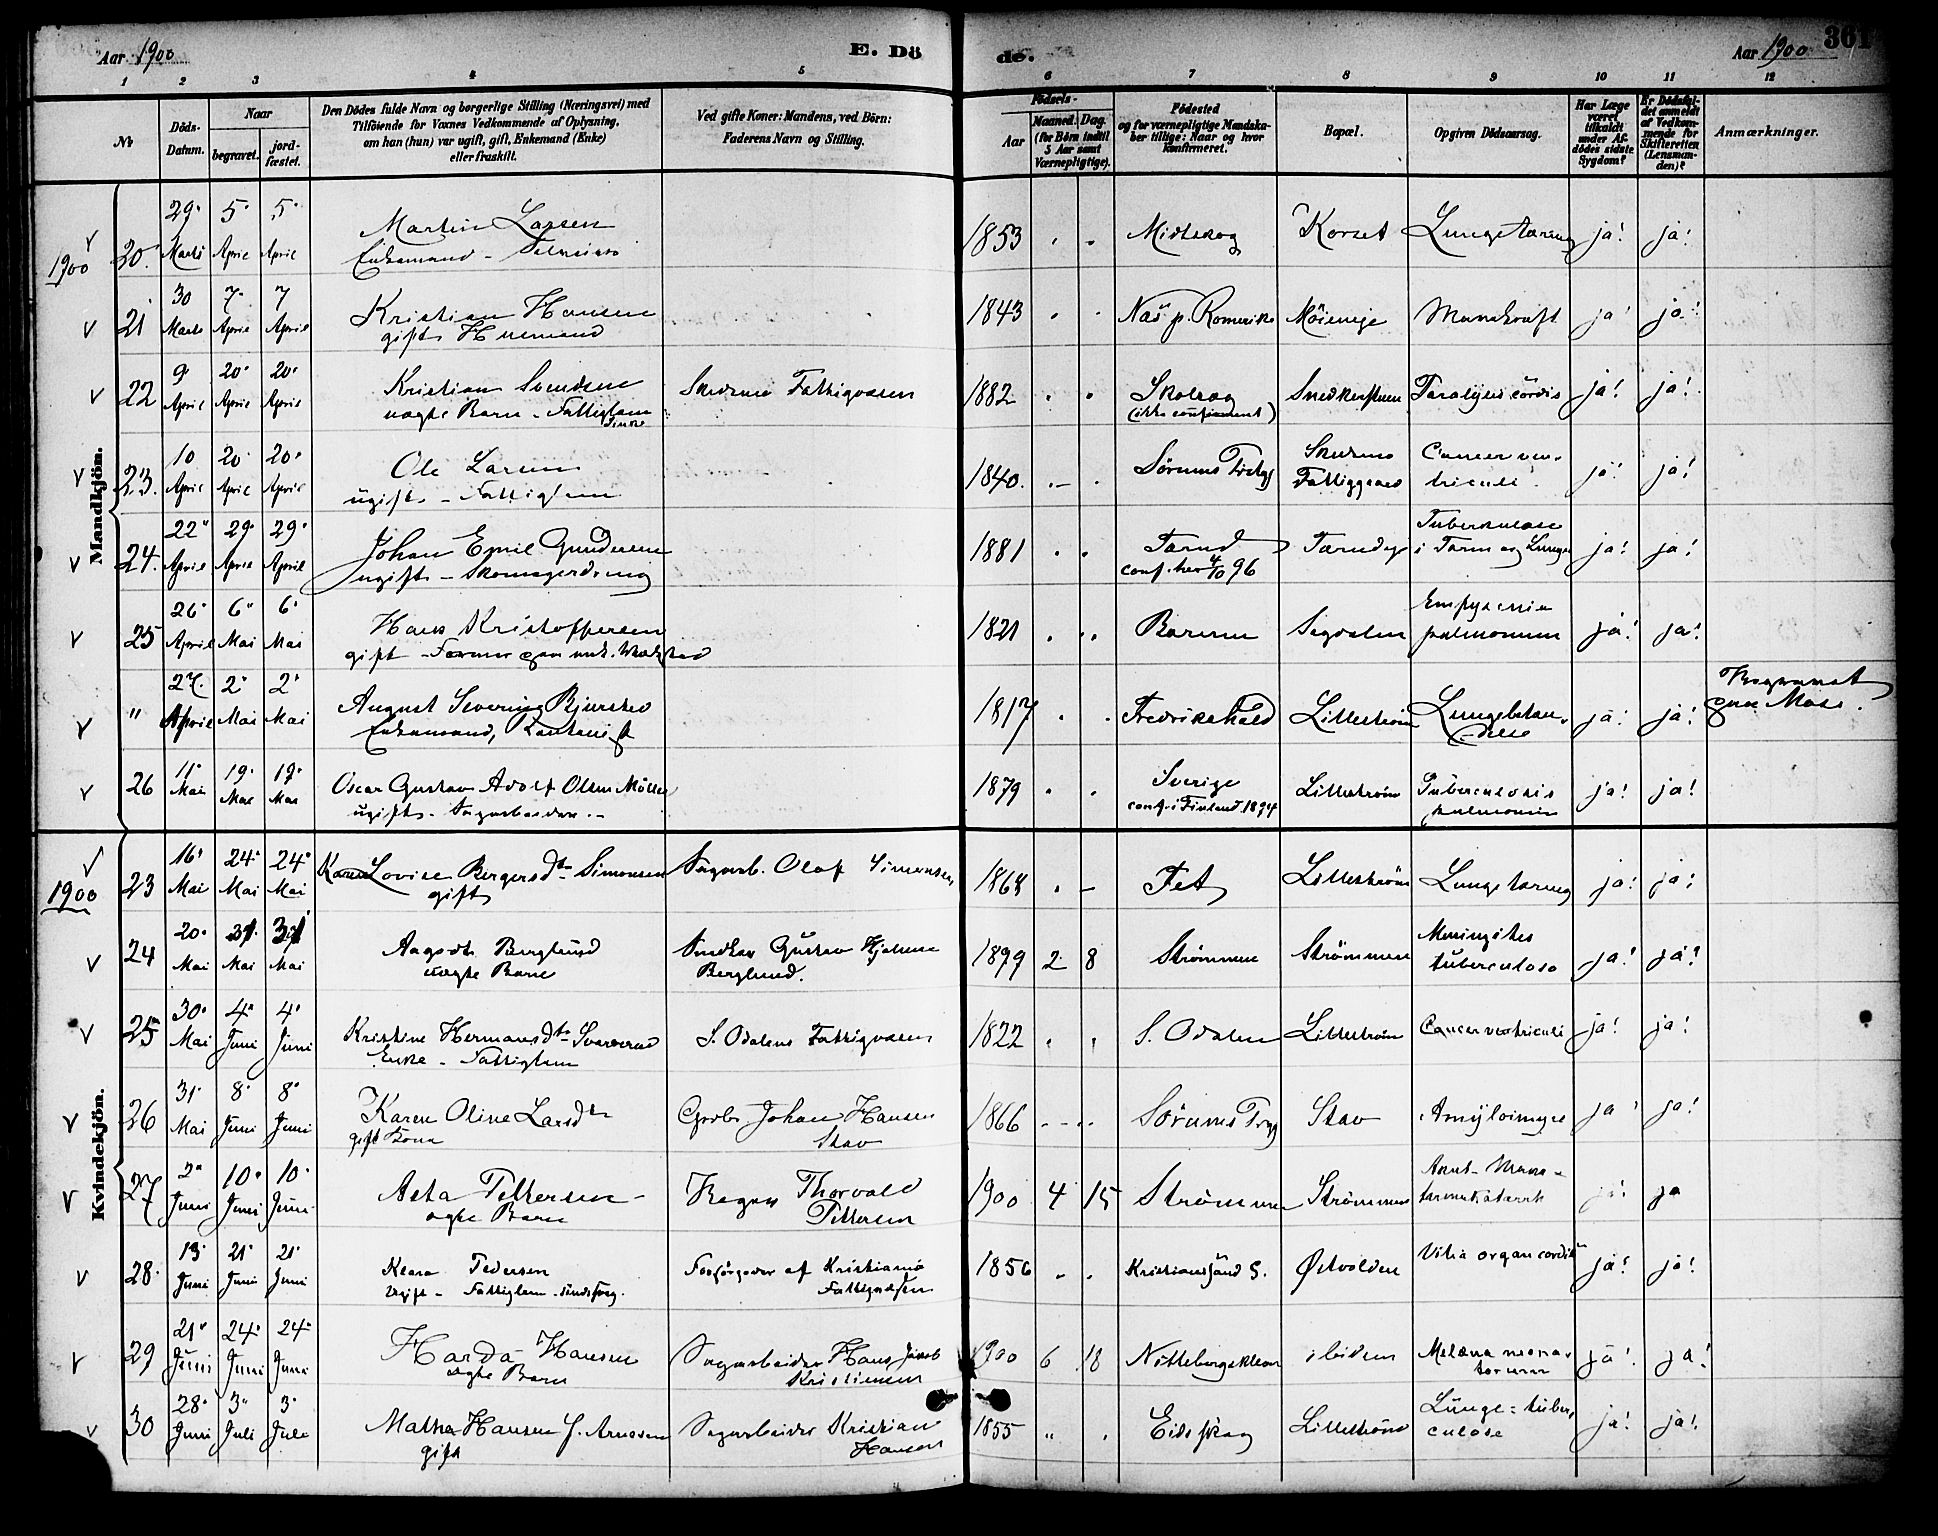 Aar 1900 E. Dö
de. Aar 1900 361
1 2 3 4 5 6 7 8 9 10 11 12
No
Döds-Datum.
Naar
begravet.
jord-fæstet.
Den Dödes fulde Navn og borgerlige Stilling (Næringsvei) med
Tilföiende for Voxnes Vedkommende af Oplysning,
om han (hun) var ugift, gift, Enkemand (Enke)
eller fraskilt.
Ved gifte Koner: Mandens, ved Börn:
Faderens Navn og Stilling.
Födsels-
Aar
Maaned. Dag.
(for Börn indtil
5 Aar samt
Værnepligtige).
Födested
og for værnepligtige Mandska-
ber tillige: Naar og hvor
konfirmeret.
Bopæl.
Opgiven Dödsaarsag.
Har Læge
været
tilkaldt
under Af-
dödes sidste
Sygdom?
Er Dödsfal-
det anmeldt
af Vedkom-
mende for
Skifteretten
(Lensman-
den)?
Anmærkninger.
Mandkjön.
1900 20. 29. Marts 5. April 5. April Martin Larsen 1853 Midtskog Korset Lungetæring ja! ja!
Enkemand -
21 30 Marts 7. April 7 April Kristian Hansen 1843 Næs p. Romerike Möienige ja! ja!
gift Husmand
22 9. April 20. April 20. April Kristian Svendsen Skedsmo Fattigvæsen 1882 Skolsag Paralysis cordis ja! ja!
uægte Barn - Fattiglem (ikke confirmeret)
23. 10 April 20. April 20. April Ole Larsen 1840. Sörums Skedsmo Cancer ven- ja! ja!
ugift - Fattiglem Fattiggaard triculi
24. 22. April 29. April 29. April Johan Emil Gundersen 1881 Tærud Tuberkulose ja! ja!
ugift - Skomagerdreng conf. her 4/10 96 i Tarm og Lunger
25 26. April 6. Mai 6. Mai Hans Kristoffersen 1821 Bærum Emfysema ja! ja!
gift - pulmonum
" 27. April 2. Mai 2. Mai August Severin 1817 Fredrikshald Lilleström Lungebetæn- ja! ja! Begravet
Enkemand, delse paa Moss.
26 11. Mai 19. Mai 19. Mai Oscar Gustav Adolf Olsen Möller 1879 Sverige Lilleström Tuberculosis ja! ja!
ugift - Sagarbeider - conf. i Finland 1894 pulmonum
Kvindekjön.
1900 23 16. Mai 24. Mai 24. Mai Karen Lovise Bergersdtr Simonsen Sagarb. Olaf Simonsen 1868 Fet Lilleström Lungetæring ja! ja!
gift
24 20. Mai 31. Mai 31. Mai Aagodt Berglund Snedker Gustav Hjalmar 1899 2 8 Strømmen Strømmen Meningitis ja! ja!
ægte Barn Berglund. tuberculosa
25 30. Mai 4. Juni 4. Juni Kristine Hermansdtr S. Odalens Fattigvæsen 1822 S. Odalen Lilleström Cancer ventriculi ja! ja!
Enke - Fattiglem
26 31. Mai 8. Juni 8. Juni Karen Oline Larsdtr Grbr. Johan Hansen 1866 Sörums Stav ja! ja!
gift Kone Stav
27 2. Juni 10. Juni 10. Juni Asta Pettersen - Thorvald 1900 4 15 Strömmen Strömmen ja! ja
ægte Barn Pettersen
28. 13. Juni 21. Juni 21. Juni Klara Pedersen Forsörges af Kristiania 1856 Kristianssand S. Østvolden Vitia organ. cordis ja! ja!
Ugift - Fattiglem - sindssvag. Fattigvæsen
29 21. Juni 24. Juni 24. Juni Harda Hansen Sagarbeider Hans Jacob 1900 6 18 ibidem Melæna neona- ja! ja!
ægte Barn Kristiansen torum
30 28. Juni 3. Juli 3. Juli Mathea Hansen f. Arnesen Sagarbeider Kristian 1855 Eidsskog Lilleström Lunge-tuber- ja! ja!
gift Hansen culose